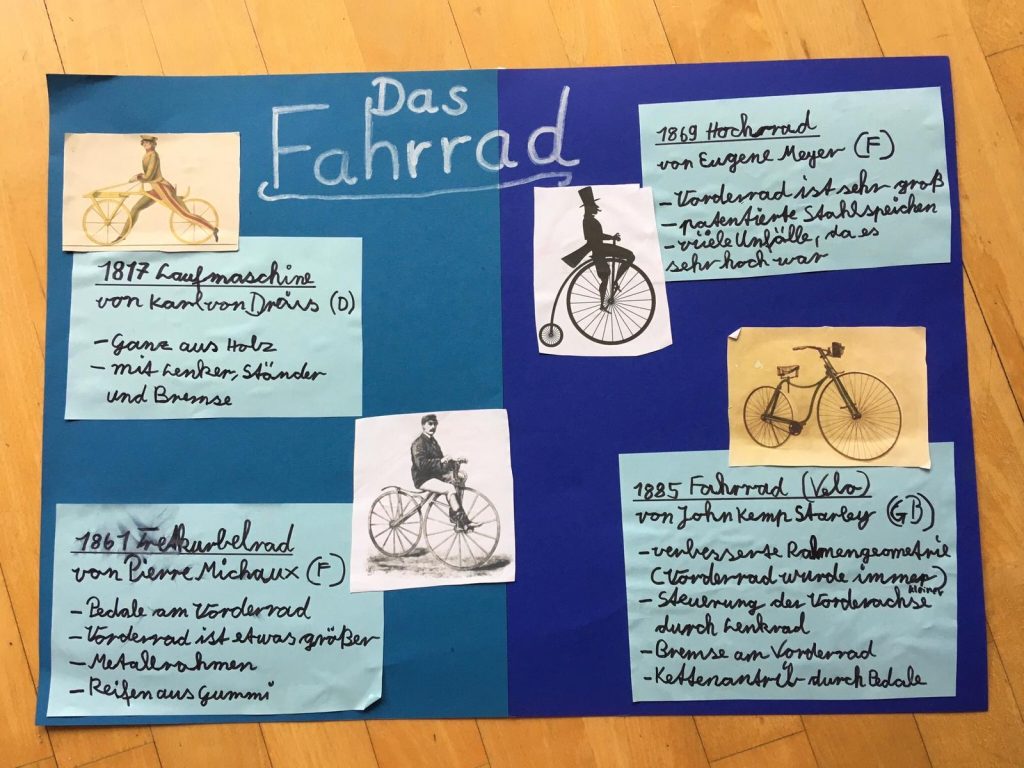 Das
Fahrrad
1817 Laufmaschine
von Karl von Drais (D)
- Ganz aus Holz
- mit Lenker, Ständer
und Bremse
1861 Tretkurbelrad
von Pierre Michaux (F)
- Pedale am Vorderrad
- Vorderrad ist etwas größer
- Metallrahmen
- Reifen aus Gummi
1869 Hochrad
von Eugene Meyer (F)
- Vorderrad ist sehr groß
- patentierte Stahlspeichen
- viele Unfälle, da es
sehr hoch war
1885 Fahrrad (Velo)
von John Kemp Starley (GB)
- verbesserte Rahmengeometrie
(Vorderrad wurde immer kleiner)
- Steuerung der Vorderachse
durch Lenkrad
- Bremse am Vorderrad
- Kettenantrib durch Pedale